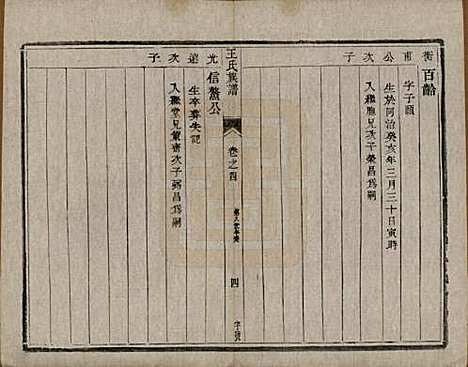 衡甫公次子
百齡
字子頤
生於同治癸亥年三月三十日寅時
入繼胞兄次子榮昌爲嗣
王氏族譜
卷之四
四
字號
光遠次子
信鰲公
生卒葬失記
入繼堂兄 次子 昌爲嗣